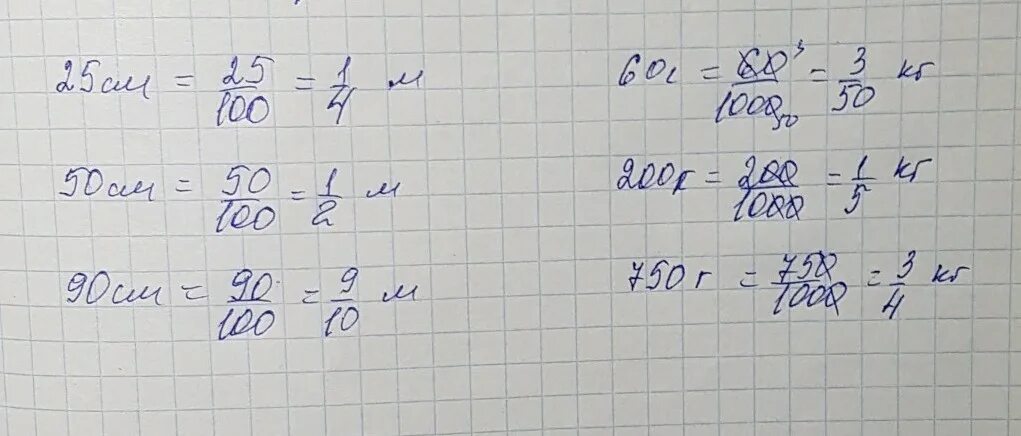 25см = 25/100 = 1/4 м
50см = 50/100 = 1/2 м
90см = 90/100 = 9/10 м
60г = 60 3/1000 50 = 3/50 кг
200г = 200/1000 = 1/5 кг
750г = 750/1000 = 3/4 кг